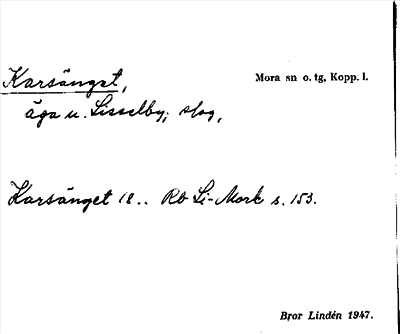 Karsänget,
Mora sn o. tg, Kopp. l.
äga u. Lisselby; skog,
Karsänget 18.. Rb Li-Mork s. 153.
Bror Lindén 1947.